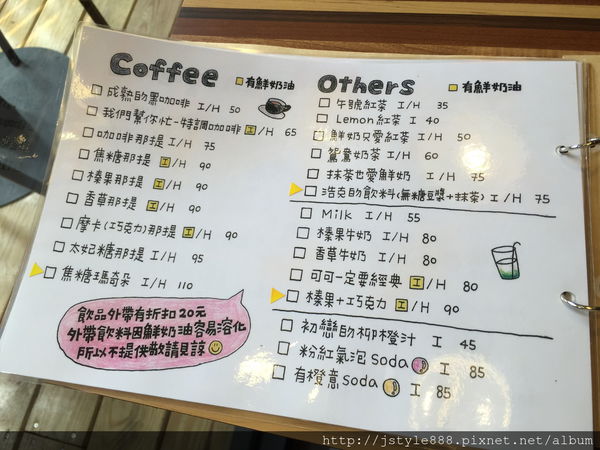 Coffee
有鮮奶油
成熟的黑咖啡 I/H 50
我們幫你忙-特調咖啡 I/H 65
咖啡那提 I/H 75
焦糖那提 I/H 90
榛果那提 I/H 90
香草那提 I/H 90
摩卡(巧克力)那提 I/H 90
太妃糖那提 I/H 95
焦糖瑪奇朵 I/H 110
飲品外帶有折扣20元
外帶飲料因鮮奶油容易溶化
所以不提供敬請見諒
Others
有鮮奶油
午號紅茶 I/H 35
Lemon紅茶 I 40
鮮奶只愛紅茶 I/H 50
鴛鴦奶茶 I/H 60
抹茶也愛鮮奶 I/H 75
浩克的飲料(無糖豆漿+抹茶) I/H 75
Milk I/H 55
榛果牛奶 I/H 80
香草牛奶 I/H 80
可可一定要經典 I/H 80
榛果+巧克力 I/H 90
初戀的柳橙汁 I 45
粉紅氣泡soda I 85
有橙意soda I 85
http://jstyle888.pixnet.net/album